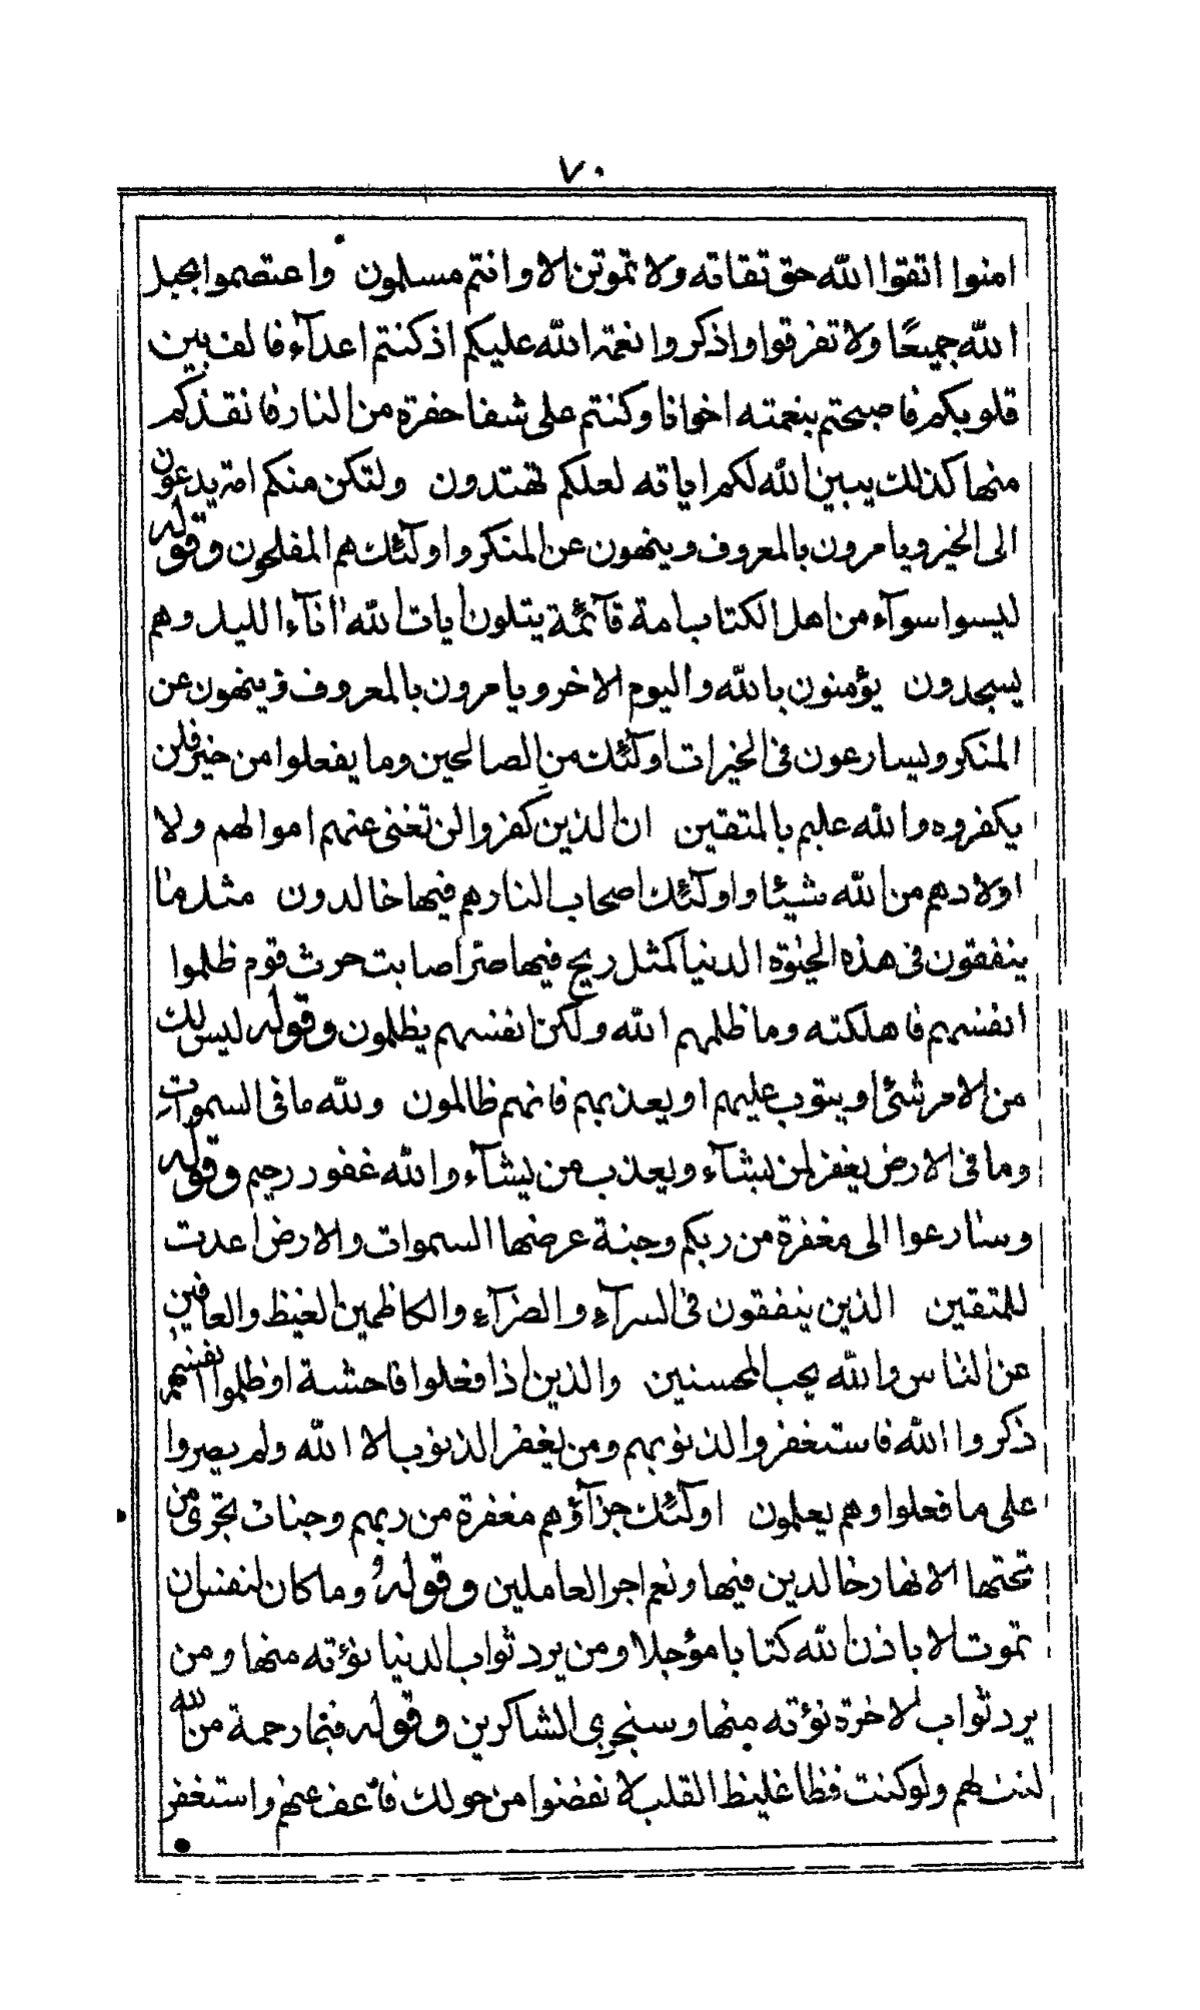 ٧٠
امنوا اتقوا الله حق تقاته ولا تموتن الا وانتم مسلمون واعتصموا بحبل
الله جميعًا ولا تفرقوا واذكروا نعمة الله عليكم اذ كنتم اعدآء فالف بين
قلوبكم فاصبحتم بنعمته اخوانا وكنتم على شفا حفرة من النار فانقذكم
منها كذلك يبين الله لكم اياته لعلكم تهتدون ولتكن منكم امة يدعون
الى الخير ويامرون بالمعروف وينهون عن المنكر واولٓئك هم المفلحون وقوله
ليسوا سوآء من اهل الكتاب امة قآئمة يتلون ايات الله اناآء الليل وهم
يسجدون يؤمنون بالله واليوم الاخر ويامرون بالمعروف وينهون عن
المنكر ويسارعون في الخيرات اولٓئك من الصالحين وما يفعلوا من خير فلن
يكفروه والله عليم بالمتقين ان الذين كفروا لن تغنى عنهم اموالهم ولا
اولادهم من الله شيئا واولٓئك اصحاب النار هم فيها خالدون مثل ما
ينفقون في هذه الحيوة الدنيا كمثل ريح فيها صر اصابت حرث قوم ظلموا
انفسهم فاهلكته وما ظلمهم الله ولكن انفسهم يظلمون وقوله ليس لك
من الامر شئ او يتوب عليهم او يعذبهم فانهم ظالمون ولله ما في السموات
وما في الارض يغفر لمن يشآء ويعذب من يشآء والله غفور رحيم وقوله
وسارعوا الى مغفرة من ربكم وجنة عرضها السموات والارض اعدت
للمتقين الذين ينفقون في السرآء والضرآء والكاظمين الغيظ والعافين
عن الناس والله يحب المحسنين والذين اذا فعلوا فاحشة او ظلموا انفسهم
ذكروا الله فاستغفروا لذنوبهم ومن يغفر الذنوب الا الله ولم يصروا
على ما فعلوا وهم يعلمون اولٓئك جزآؤهم مغفرة من ربهم وجنات تجرى من
تحتها الانهار خالدين فيها ونعم اجر العاملين وقوله وما كان لنفس ان
تموت الا باذن الله كتابا مؤجلا ومن يرد ثواب الدنيا نؤته منها ومن
يرد ثواب الاخرة نؤته منها وسنجزى الشاكرين وقوله فبما رحمة من الله
لنت لهم ولو كنت فظا غليظ القلب لانفضوا من حولك فاعف عنهم واستغفر